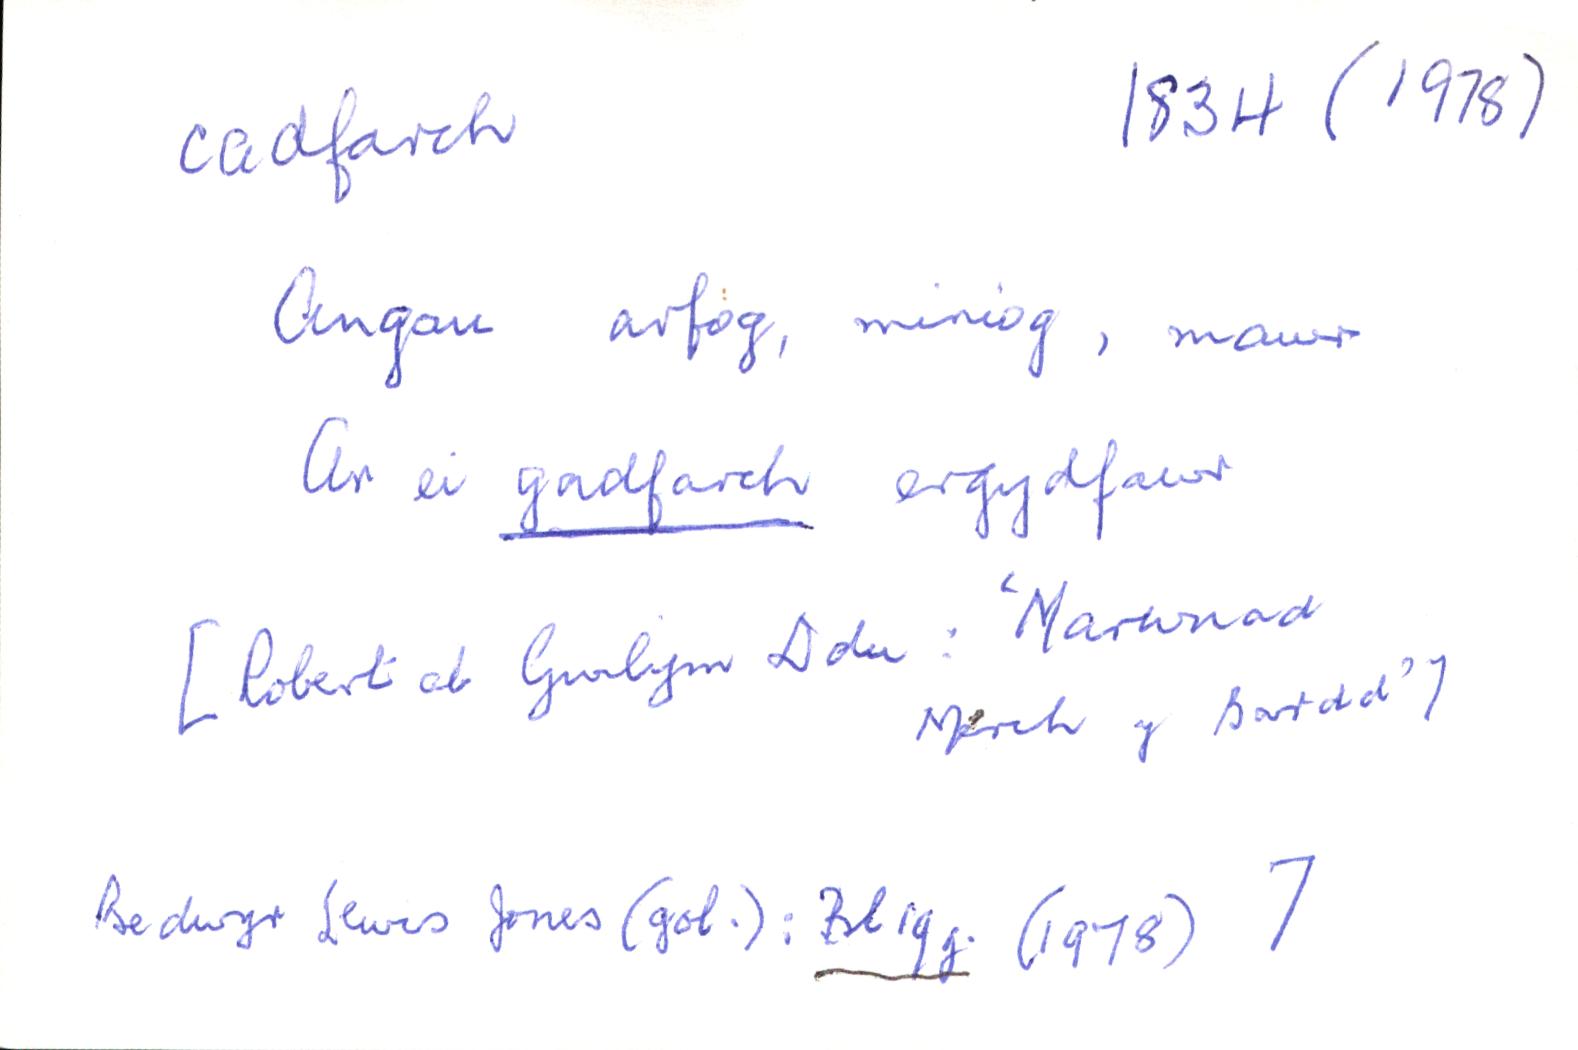 cadfarch 1834 (1978)
Angau arfog, miniog, mawr
Ar ei gadfarch ergydfawr
[Robert ab Gwilym Ddu : ‘Marwnad
Merch y Bardd’]
Bedwyr Lewis Jones (gol.): Bl 19g. (1978) 7